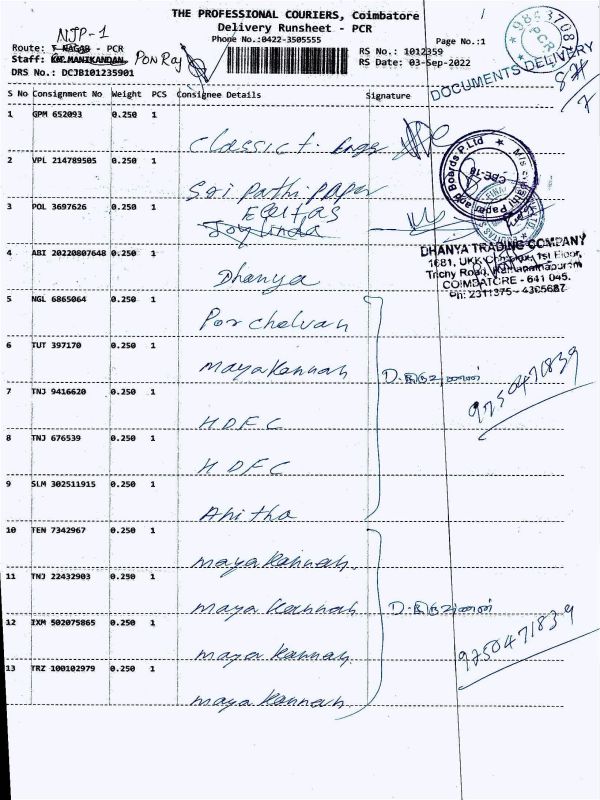 THE PROFESSIONAL COURIERS, Coimbatore
Delivery Runsheet - PCR
Phone No.:0422-3505555
Page No.:1
NJP-1
Route: T NAGAR - PCR
Staff: KMP.MANIKANDAN. Pon Raj
DRS No.: DCJB101235901
RS No.: 1012359
RS Date: 03-Sep-2022
PCR
DOCUMENTS DELIVERY
S No Consignment No Weight PCS Consignee Details Signature
1 GPM 652093 0.250 1
Classic
2 VPL 214789505 0.250 1
Sri pathi paper
3 POL 3697626 0.250 1
Equitas
4 ABI 20220807648 0.250 1
Dhanya
DHANYA TRADING COMPANY
1681, UKK Complex, 1st Floor,
Trichy Road, Ramanathapuram
COIMBATORE - 641 045.
Ph: 2311375 - 4365687
5 NGL 6865064 0.250 1
Por chelvan
6 TUT 397170 0.250 1
maya kannan
9750471839
7 TNJ 9416620 0.250 1
HDFC
8 TNJ 676539 0.250 1
HDFC
9 SLM 302511915 0.250 1
Anitha
10 TEN 7342967 0.250 1
maya kannan.
11 TNJ 22432903 0.250 1
maya kannan
12 IXM 502075865 0.250 1
maya kannan
9750471839
13 TRZ 100102979 0.250 1
maya kannan